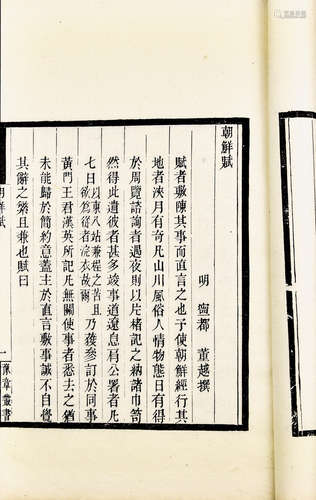 朝鮮賦
明 寧都 董越撰
賦者敷陳其事而直言之也予使朝鮮經行其
地者浹月有奇凡山川風俗人情物態日有得
於周覽諮詢者遇夜輒以片楮記之納諸巾笥
然得此遺彼者甚多竣事道遼息肩公署者凡
七日以東八站兼程之苦且欲爲從者浣衣故爾乃獲參訂於同事
黃門王君漢英所記凡無關使事者悉去之猶
未能歸於簡約意蓋主於直言敷事誠不自覺
其辭之繁且兼也賦曰
朝鮮賦
一
豫章叢書